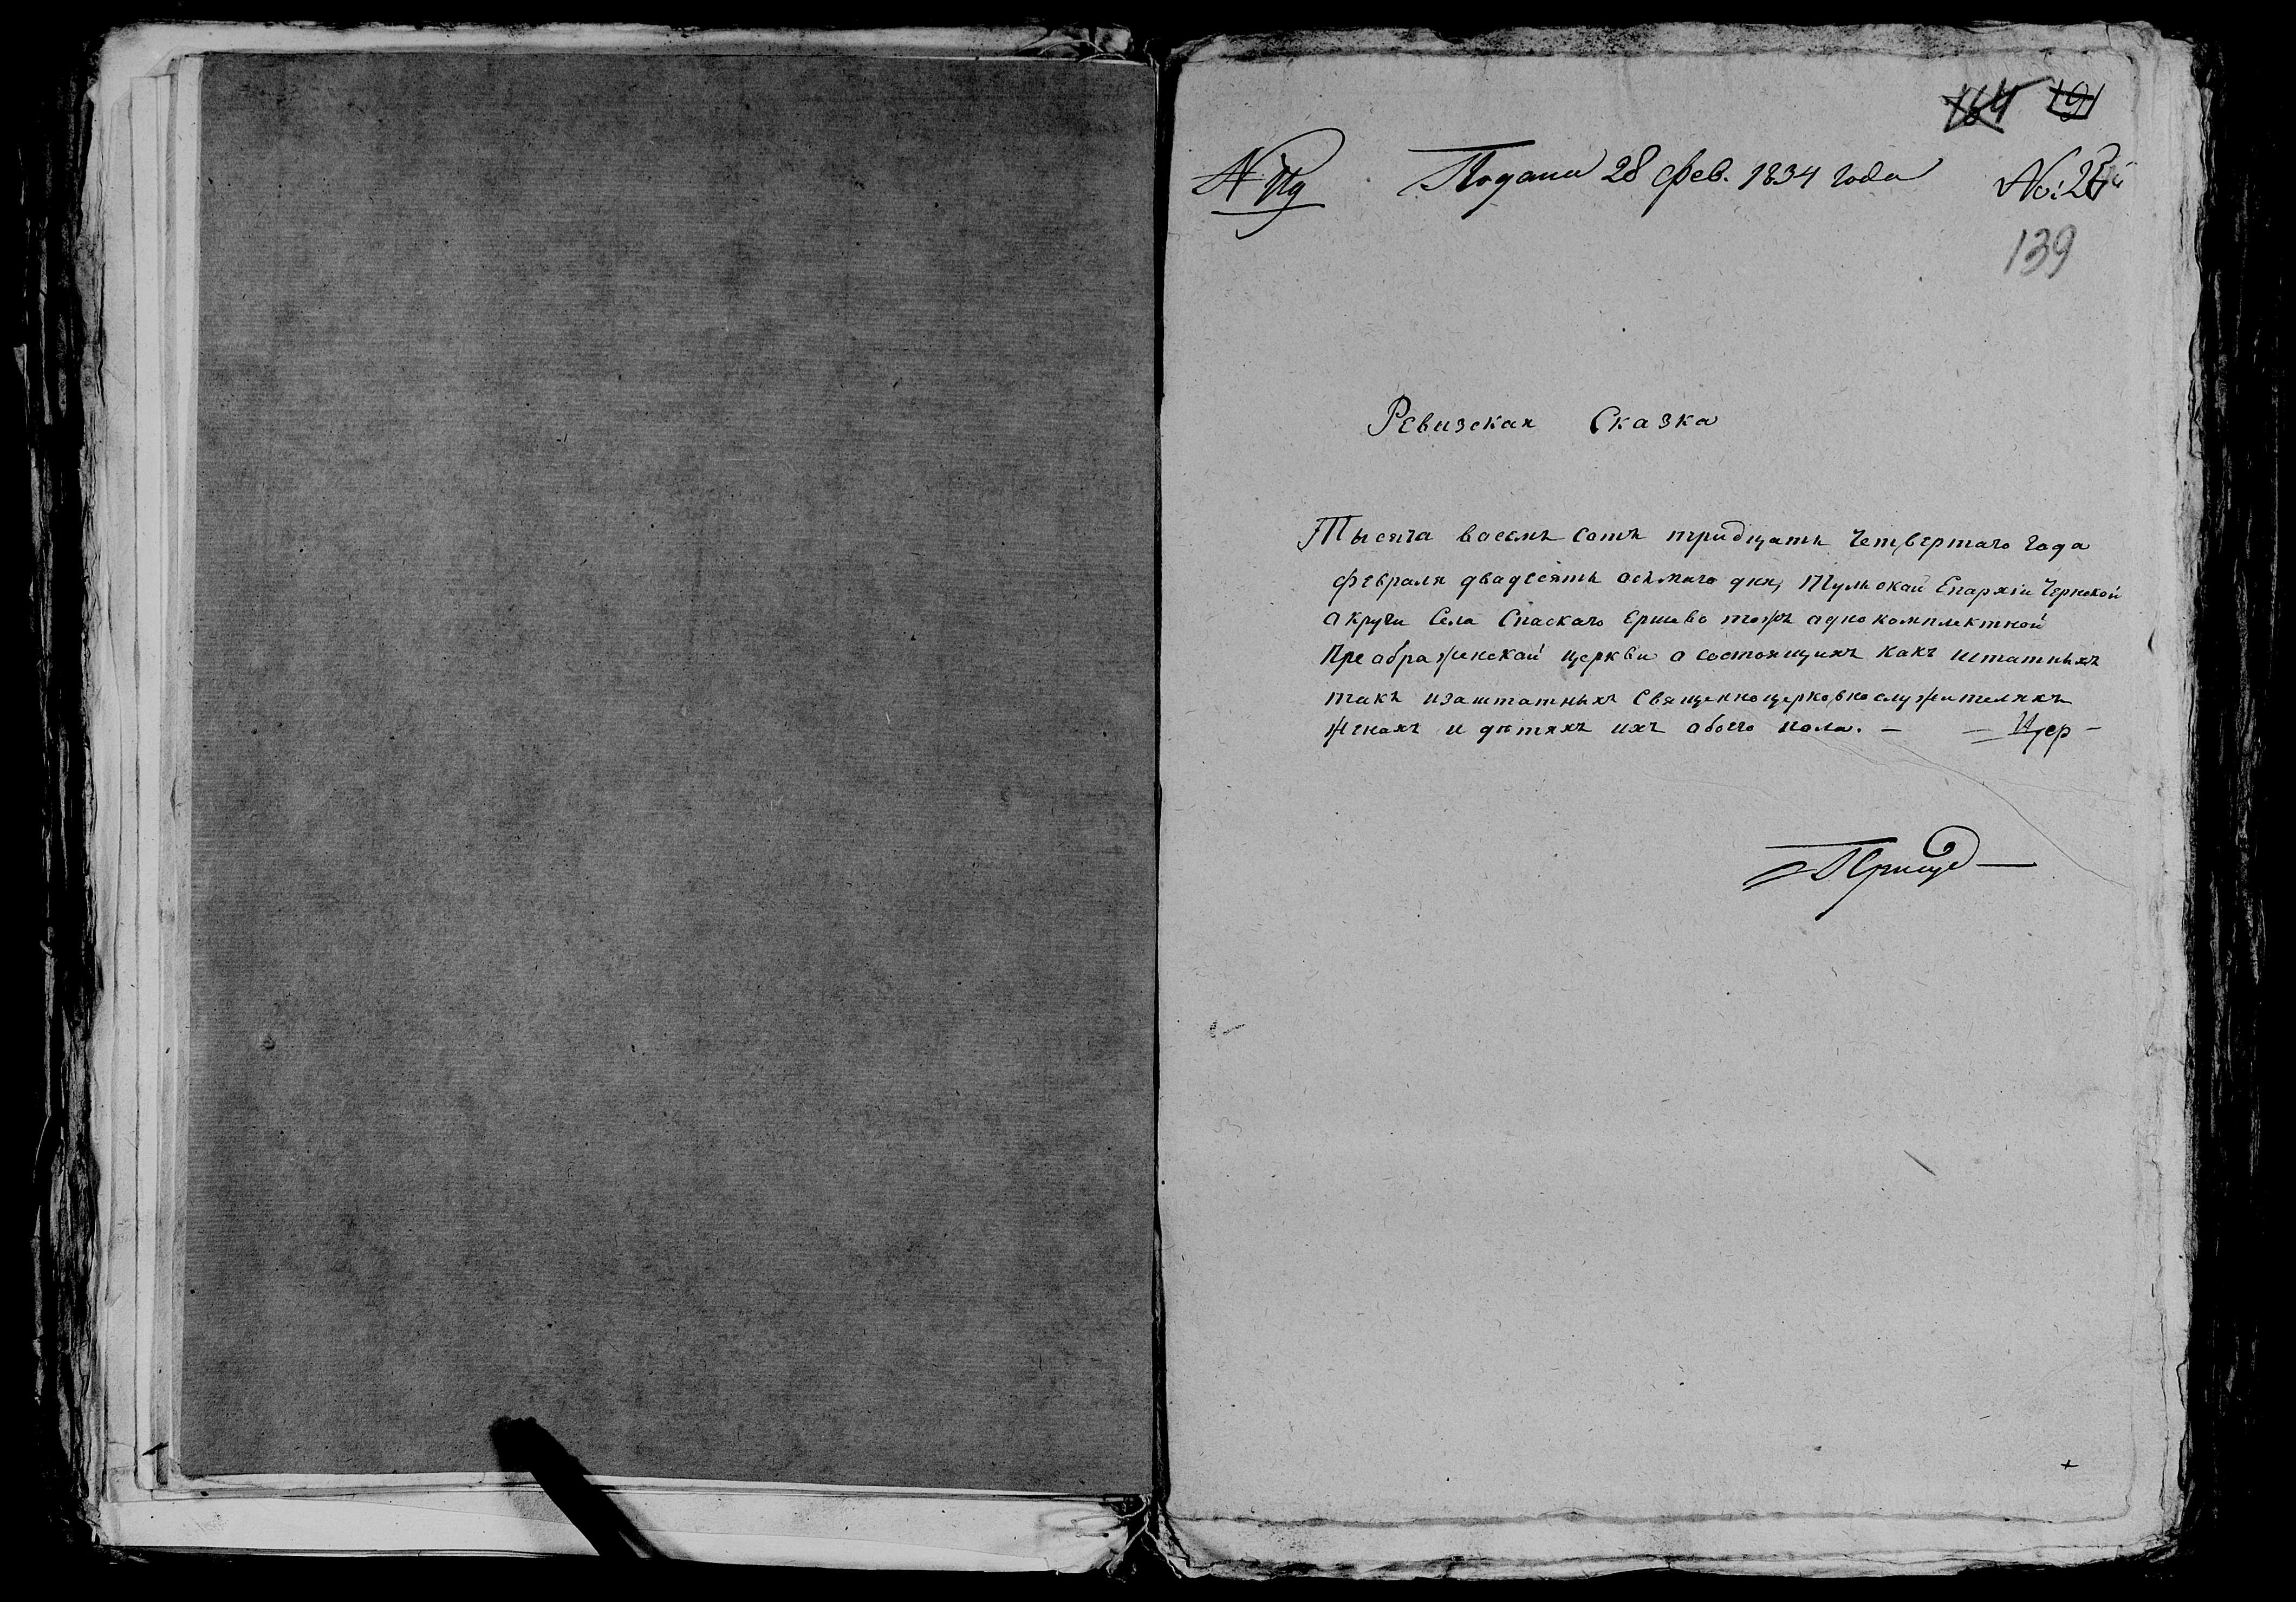 164 191
Подана 28 фев. 1834 года
139
Ревизская Сказка
Тысяча восемъ сотъ тридцать четвертаго года
февраля двадесять осьмаго дня, Тульской Епархіи Чернской
округи Села Спаскаго Ершево тожъ однокомплектной
Преображенской церкви о состоящихъ какъ штатныхъ
такъ изаштатныхъ Священноцерковнослужителяхъ
женахъ и дѣтяхъ ихъ обоего пола. —